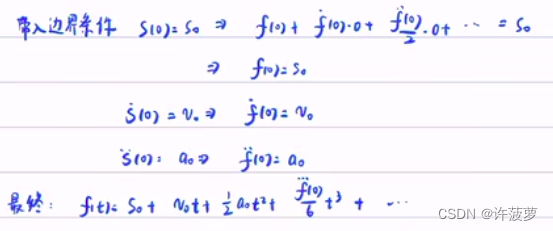 带入边界条件 S(0)=S₀ ⇒ f(0)+ ḟ(0)·0+ f̈(0)/2·0+ ⋯ = S₀
⇒ f(0)=S₀
Ṡ(0)=v₀ ⇒ ḟ(0)=v₀
S̈(0)=a₀ ⇒ f̈(0)=a₀
最终: f(t)= S₀+ v₀t+ ½a₀t²+ f⃛(0)/6 t³ + ⋯
CSDN @许菠萝